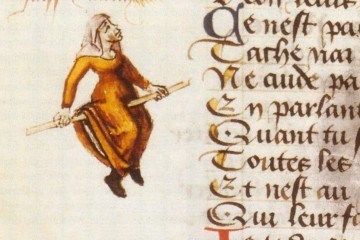 Ce nest pa
Tache nar
Ne aude pa
En parlan
Quant tu
Toutes les
Et nest au
Qui leur fa